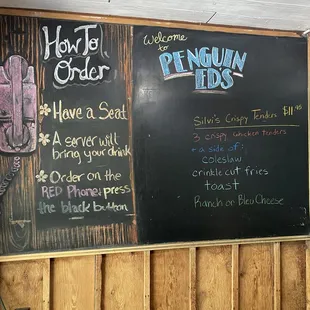 How To
Order
Have a Seat
A server will
bring your drink
Order on the
RED Phone; press
the black button
Welcome
to
PENGUIN
ED'S
Silvi's Crispy Tenders $11.95
3 crispy chicken tenders
+ a side of:
coleslaw
crinkle cut fries
toast
Ranch or Bleu Cheese